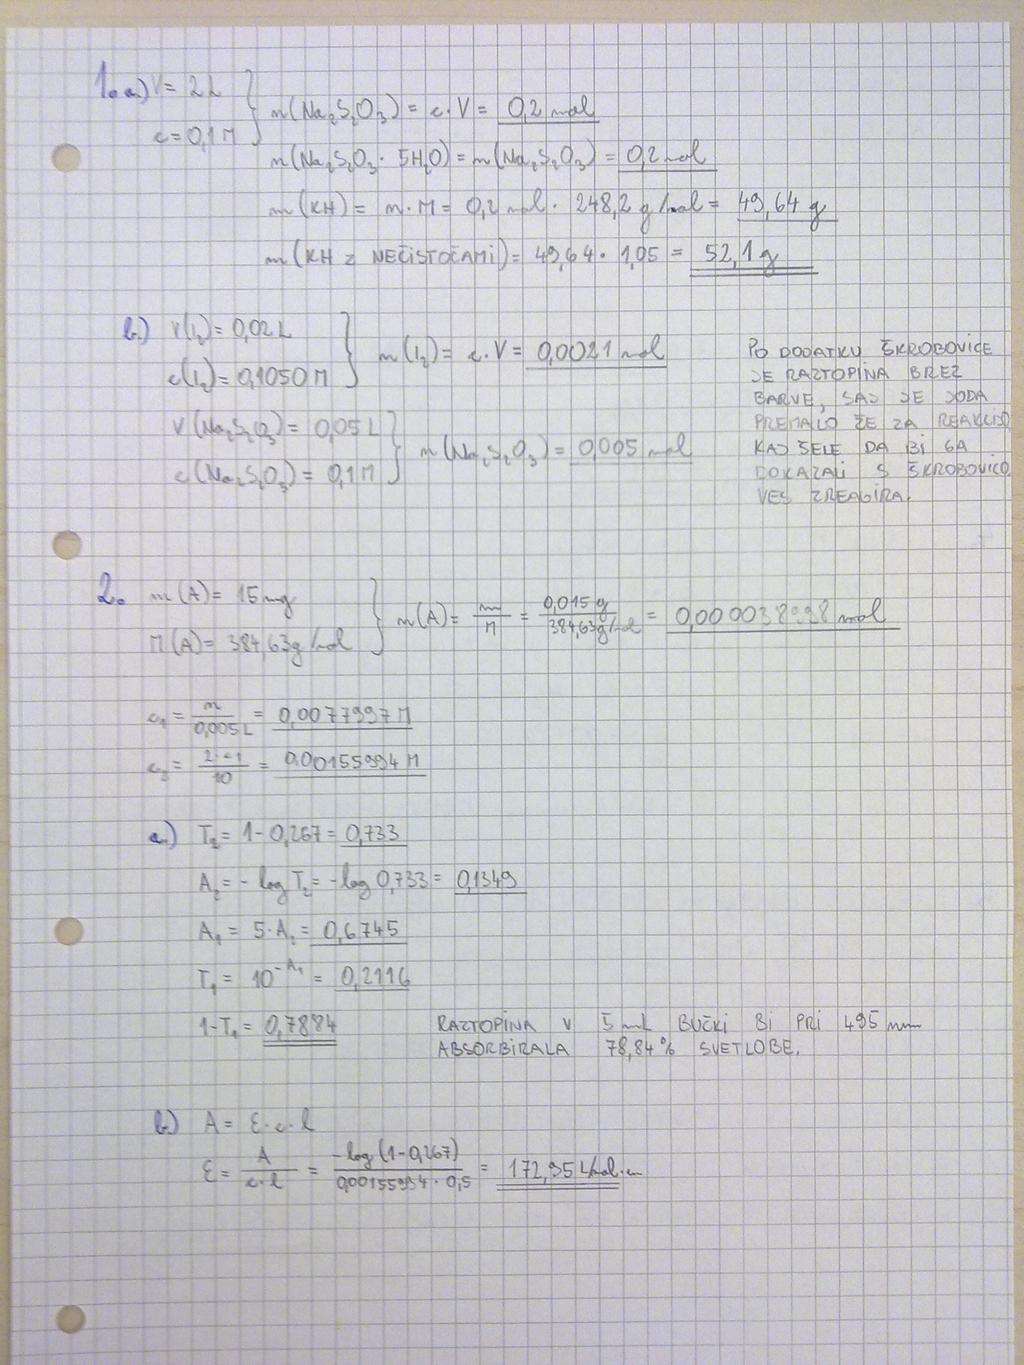 1. a) V = 2 L
c = 0,1 M
n(Na₂S₂O₃) = c·V = 0,2 mol
n(Na₂S₂O₃·5H₂O) = n(Na₂S₂O₃) = 0,2 mol
m(KH) = n·M = 0,2 mol · 248,2 g/mol = 49,64 g
m(KH Z NEČISTOČAMI) = 49,64 · 1,05 = 52,1 g
b.) V(I₂) = 0,02 L
c(I₂) = 0,1050 M
n(I₂) = c·V = 0,0021 mol
V(Na₂S₂O₃) = 0,05 L
c(Na₂S₂O₃) = 0,1 M
n(Na₂S₂O₃) = 0,005 mol
PO DODATKU ŠKROBOVICE
JE RAZTOPINA BREZ
BARVE, SAJ JE JODA
PREMALO ŽE ZA REAKCIJO
KAJ ŠELE DA BI GA
DOKAZALI S ŠKROBOVICO
VES ZREAGIRA.
2. m(A) = 15 mg
M(A) = 384,63 g/mol
n(A) = m/M = 0,015 g/384,63 g/mol = 0,000038998 mol
c₁ = n/0,005 L = 0,0077997 M
c₂ = 2·c₁/10 = 0,00155994 M
a.) T₂ = 1 - 0,267 = 0,733
A₂ = - log T₂ = - log 0,733 = 0,1349
A₁ = 5·A₂ = 0,6745
T₁ = 10^-A₁ = 0,2116
1-T₁ = 0,7884
RAZTOPINA V 5 mL BUČKI BI PRI 495 nm
ABSORBIRALA 78,84% SVETLOBE.
b.) A = ε·c·l
ε = A/c·l = -log(1-0,267)/0,00155994 · 0,5 = 172,95 L/mol·cm